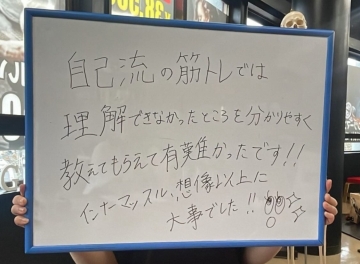 自己流の筋トレでは
理解できなかったところを分かりやすく
教えてもらえて有難かったです!!
インナーマッスル、想像以上に
大事でした!!